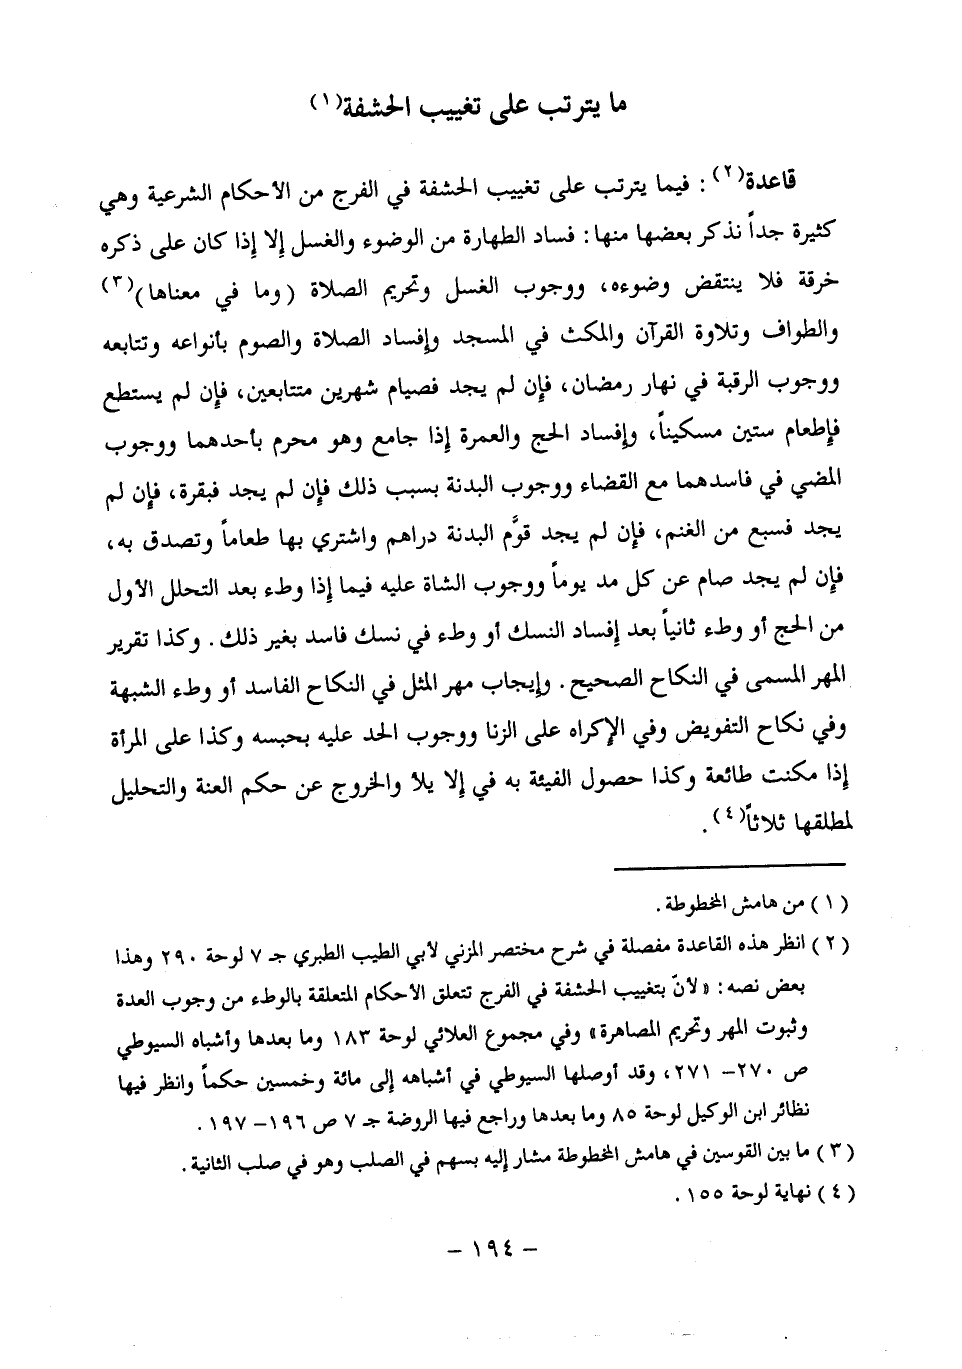 ما يترتب على تغييب الحشفة(١)
قاعدة(٢) : فيما يترتب على تغييب الحشفة في الفرج من الأحكام الشرعية وهي
كثيرة جداً نذكر بعضها منها : فساد الطهارة من الوضوء والغسل إلا إذا كان على ذكره
خرقة فلا ينتقض وضوءه، ووجوب الغسل وتحريم الصلاة (وما في معناها)(٣)
والطواف وتلاوة القرآن والمكث في المسجد وإفساد الصلاة والصوم بأنواعه وتتابعه
ووجوب الرقبة في نهار رمضان، فإن لم يجد فصيام شهرين متتابعين، فإن لم يستطع
فإطعام ستين مسكيناً، وإفساد الحج والعمرة إذا جامع وهو محرم بأحدهما ووجوب
المضي في فاسدهما مع القضاء ووجوب البدنة بسبب ذلك فإن لم يجد فبقرة، فإن لم
يجد فسبع من الغنم، فإن لم يجد قوَّم البدنة دراهم واشتري بها طعاماً وتصدق به،
فإن لم يجد صام عن كل مد يوماً ووجوب الشاة عليه فيما إذا وطء بعد التحلل الأول
من الحج أو وطء ثانياً بعد إفساد النسك أو وطء في نسك فاسد بغير ذلك . وكذا تقرير
المهر المسمى في النكاح الصحيح . وإيجاب مهر المثل في النكاح الفاسد أو وطء الشبهة
وفي نكاح التفويض وفي الإكراه على الزنا ووجوب الحد عليه بحبسه وكذا على المرأة
إذا مكنت طائعة وكذا حصول الفيئة به في إلا يلأ والخروج عن حكم العنة والتحليل
لمطلقها ثلاثاً(٤) .
(١) من هامش المخطوطة .
(٢) انظر هذه القاعدة مفصلة في شرح مختصر المزني لأبي الطيب الطبري جـ ٧ لوحة ٢٩٠ وهذا
بعض نصه : «لأنّ بتغييب الحشفة في الفرج تتعلق الأحكام المتعلقة بالوطء من وجوب العدة
وثبوت المهر وتحريم المصاهرة» وفي مجموع العلائي لوحة ١٨٣ وما بعدها وأشباه السيوطي
ص ٢٧٠ – ٢٧١، وقد أوصلها السيوطي في أشباهه إلى مائة وخمسين حكماً وانظر فيها
نظائر ابن الوكيل لوحة ٨٥ وما بعدها وراجع فيها الروضة جـ ٧ ص ١٩٦ – ١٩٧ .
(٣) ما بين القوسين في هامش المخطوطة مشار إليه بسهم في الصلب وهو في صلب الثانية .
(٤) نهاية لوحة ١٥٥ .
– ١٩٤ –